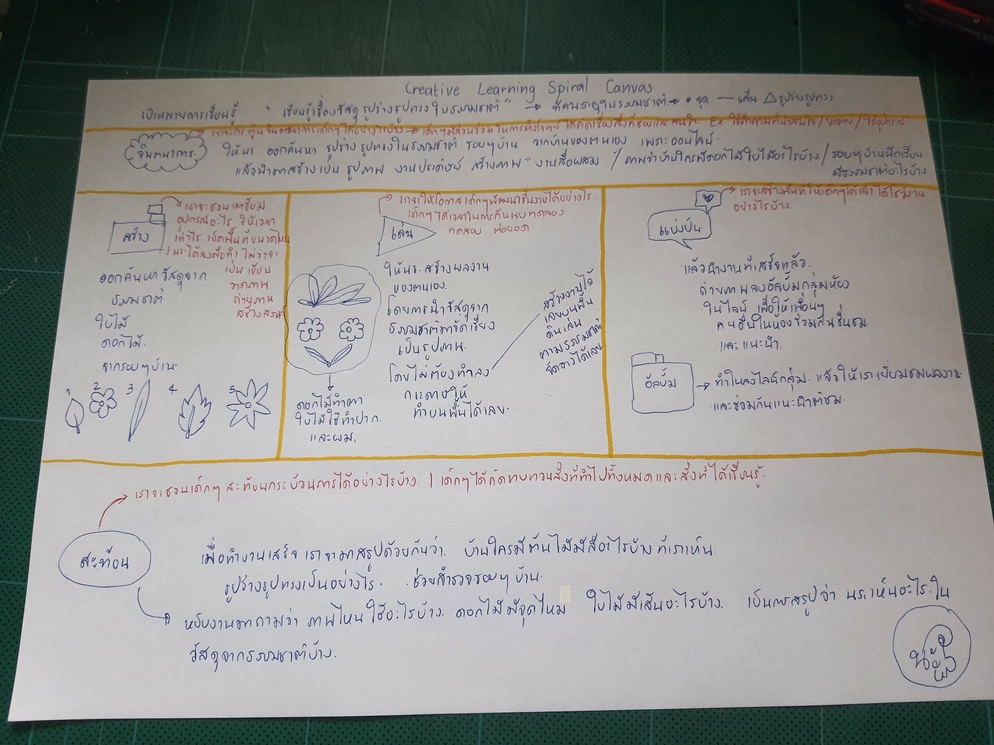 Creative Learning Spiral Canvas
เป้าหมายการเรียนรู้ "เรียนรู้เรื่องวัสดุ รูปร่างรูปทรงในธรรมชาติ" → ทัศนธาตุในธรรมชาติ → • จุด — เส้น △ รูปร่างรูปทรง
จินตนาการ
ให้นร. ออกค้นหา รูปร่าง รูปทรงในธรรมชาติ รอบๆบ้าน จากบ้านของตนเอง เพราะออนไลน์
แล้วนำมาสร้างเป็น รูปภาพ งานประดิษฐ์ สร้างภาพ งานสื่อผสม / ถามว่าบ้านใครมีดอกไม้ใบไม้อะไรบ้าง / รอบๆบ้านนักเรียน
มีธรรมชาติอะไรบ้าง
สร้าง
เราจะชวนเตรียม
อุปกรณ์อะไร ให้เวลา
เท่าไร เปิดพื้นที่ขนาดไหน
ได้ลงมือทำ ไม่ว่าจะ
เป็น เขียน
วาดภาพ
ถ่ายภาพ
ออกค้นหา วัสดุจาก
ธรรมชาติ
ใบไม้
ดอกไม้
จากรอบๆบ้าน
1 2 3 4 5
เล่น
เราจะให้โอกาส เด็กๆพัฒนาชิ้นงานได้อย่างไร
เด็กๆได้เวลาในการค้นพบ ทดลอง
ทดสอบ ต่อยอด
ให้นร. สร้างผลงาน
ของตนเอง
โดยการนำวัสดุจาก
ธรรมชาติมาจัดเรียง
เป็นรูปภาพ
โดยไม่ต้องทำลง
กระดาษให้
ทำบนพื้นได้เลย.
ดอกไม้ทำตา
ใบไม้ใช้ทำปาก
และผม.
สร้างงานไว้
เลยบนพื้น
ดินเล่น
ตามธรรมชาติ
จัดวางได้เลย
แบ่งปัน
เราจะสร้างพื้นที่ให้เด็กๆได้เล่า ได้โชว์งาน
อย่างไรบ้าง
แล้วนำงานที่เสร็จแล้ว
ถ่ายภาพลงอัลบั้มกลุ่มห้อง
ในไลน์ เพื่อให้เพื่อนๆ
คนอื่นในห้องร่วมกันชื่นชม
และแนะนำ.
อัลบั้ม
→ ทำในลงไลน์กลุ่ม แล้วให้เราเยี่ยมชมผลงาน
และช่วยกันแนะนำติชม.
เราจะชวนเด็กๆ สะท้อนกระบวนการได้อย่างไรบ้าง / เด็กๆได้คิดทบทวนสิ่งที่ทำไปทั้งหมดและสิ่งที่ได้เรียนรู้.
สะท้อน
เมื่อทำงานเสร็จ เราจะมาสรุปด้วยกันว่า บ้านใครมีต้นไม้มีสีอะไรบ้าง ที่เราเห็น
รูปร่างรูปทรงเป็นอย่างไร. ช่วยสำรวจรอบๆบ้าน.
หยิบงานมาถามว่า ภาพไหนใช้อะไรบ้าง ดอกไม้มีจุดไหม ใบไม้มีเส้นอะไรบ้าง เป็นการสรุปว่า นร.เห็นอะไรใน
วัสดุจากธรรมชาติบ้าง.